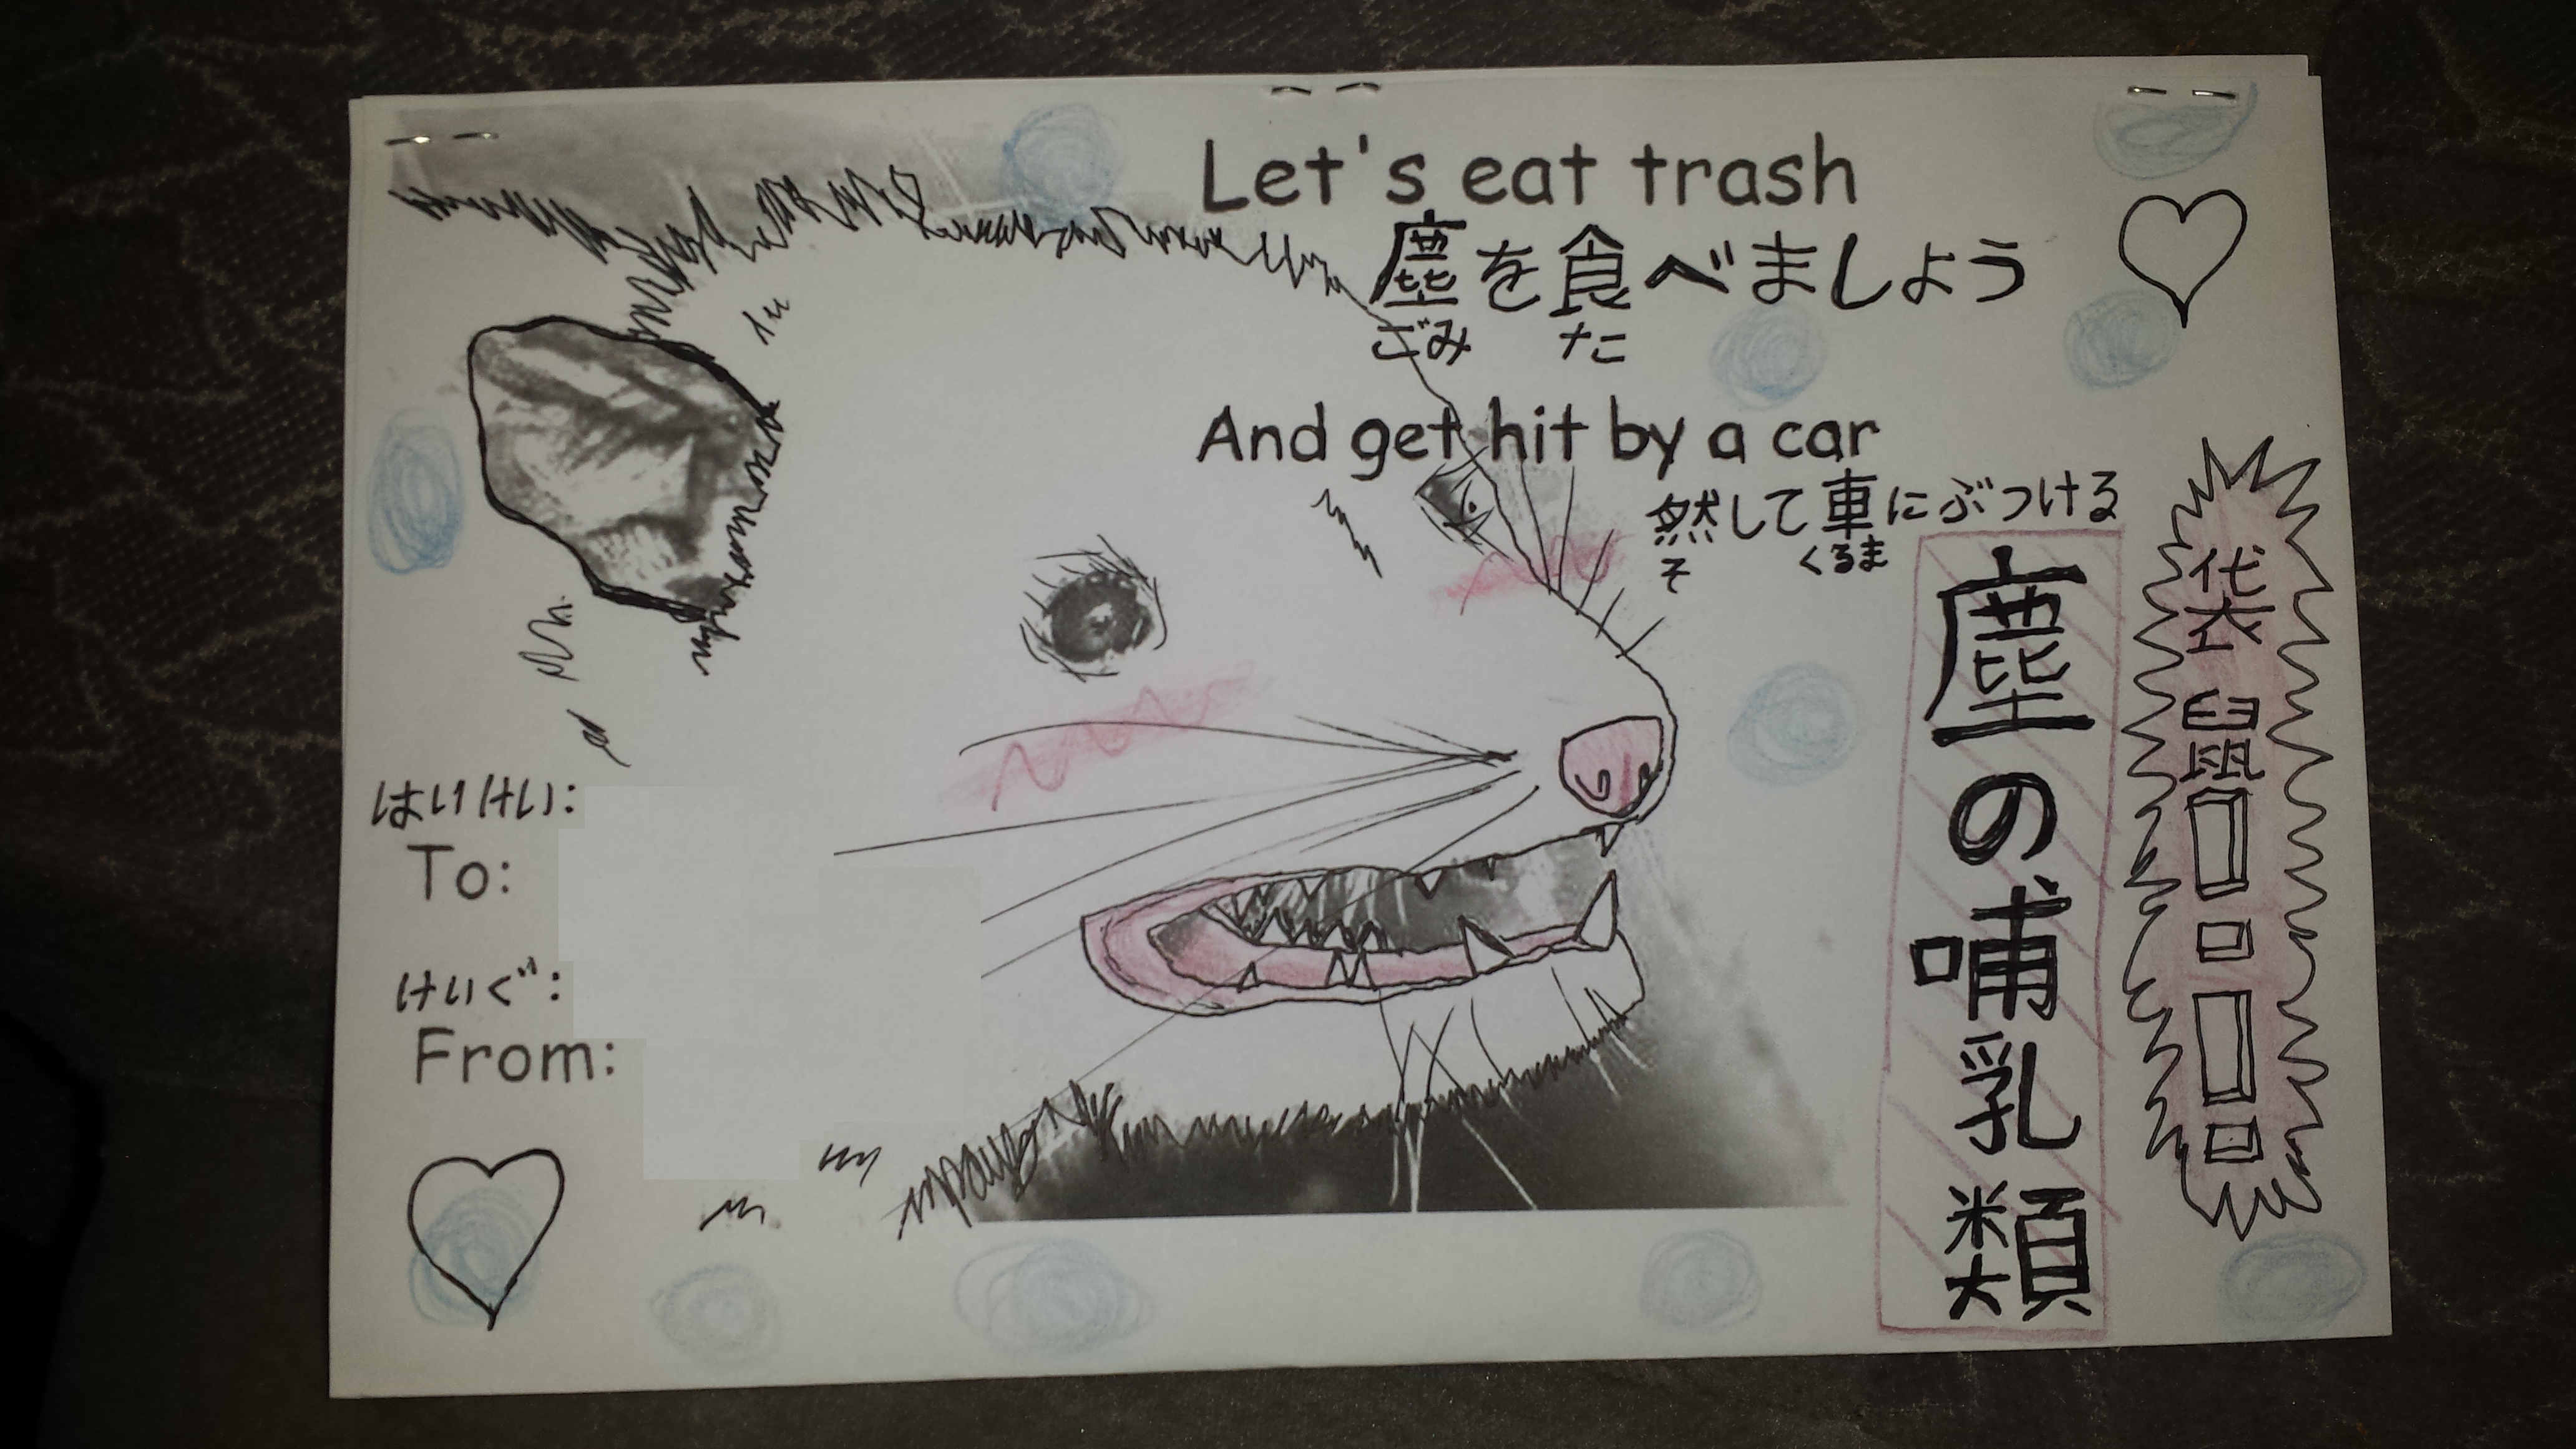 Let's eat trash
塵を食べましょう
ごみ た
And get hit by a car
然して車にぶつける
そ くるま
袋鼠!!
塵の哺乳類
はいけい:
To:
けいぐ:
From: